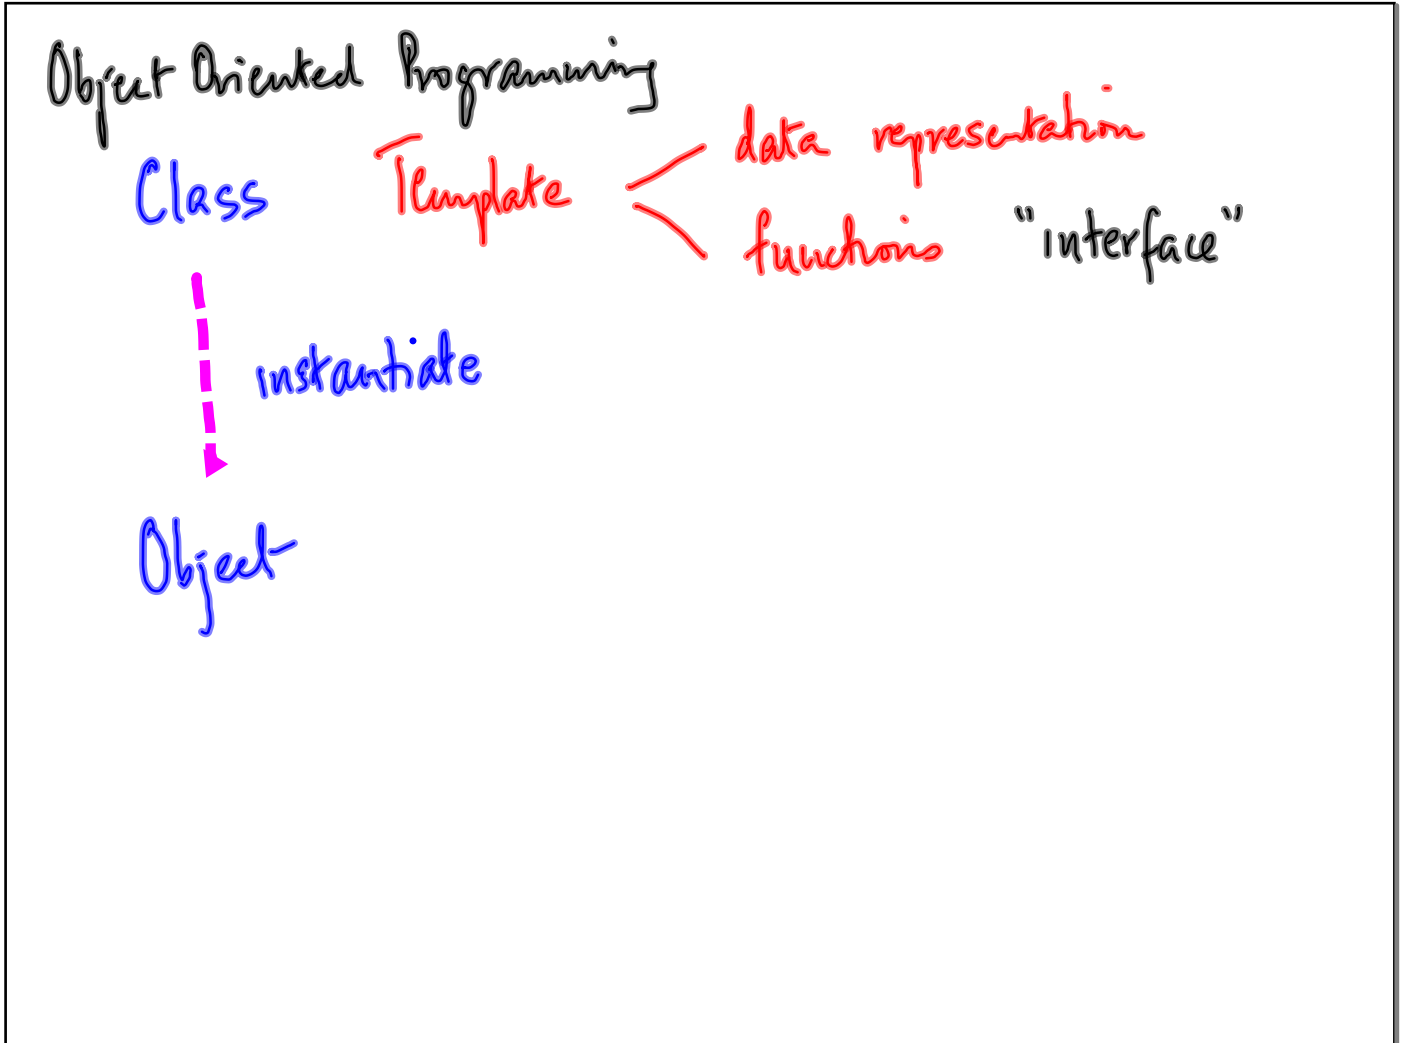 Object Oriented Programming
Class Template data representation
functions "interface"
instantiate
Object